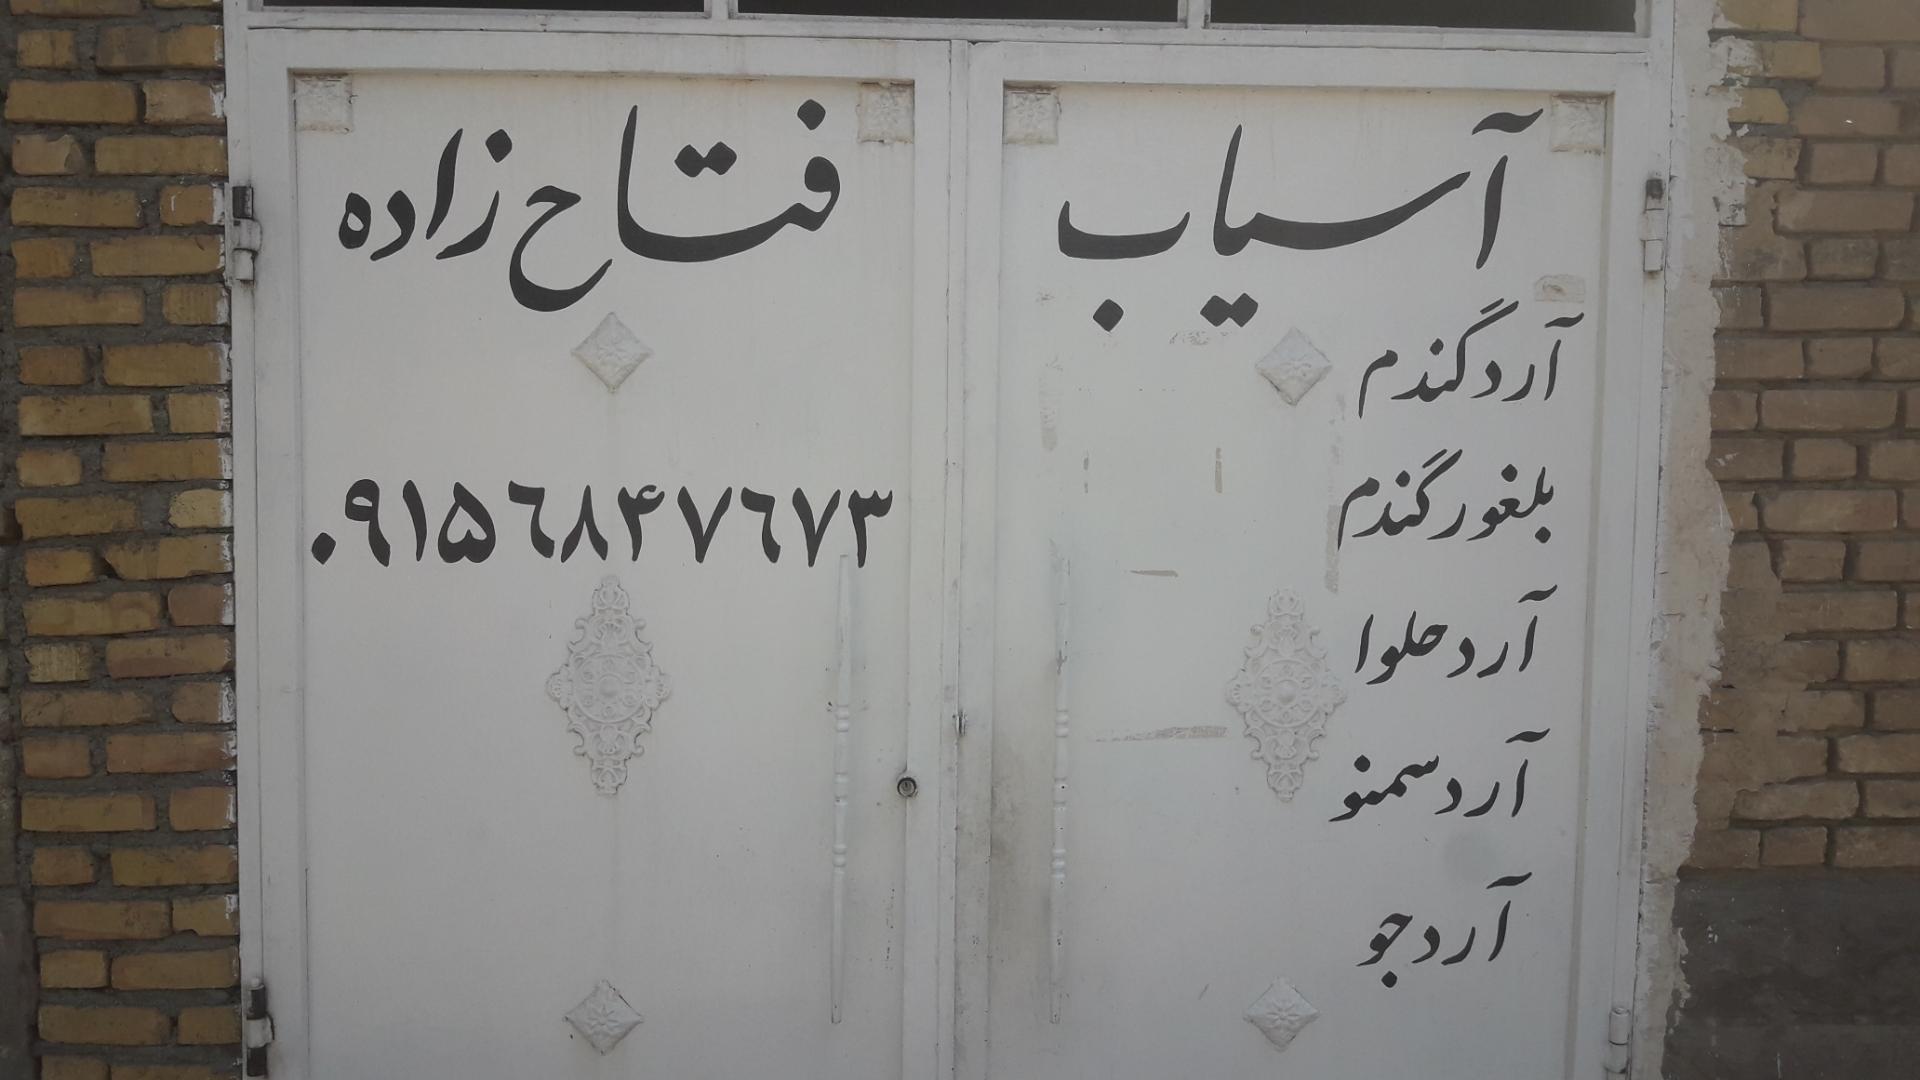 آسیاب فتاح زاده
آرد گندم
بلغور گندم
آرد حلوا
آرد سمنو
آرد جو
۰۹۱۵۶۸۴۷۶۷۳